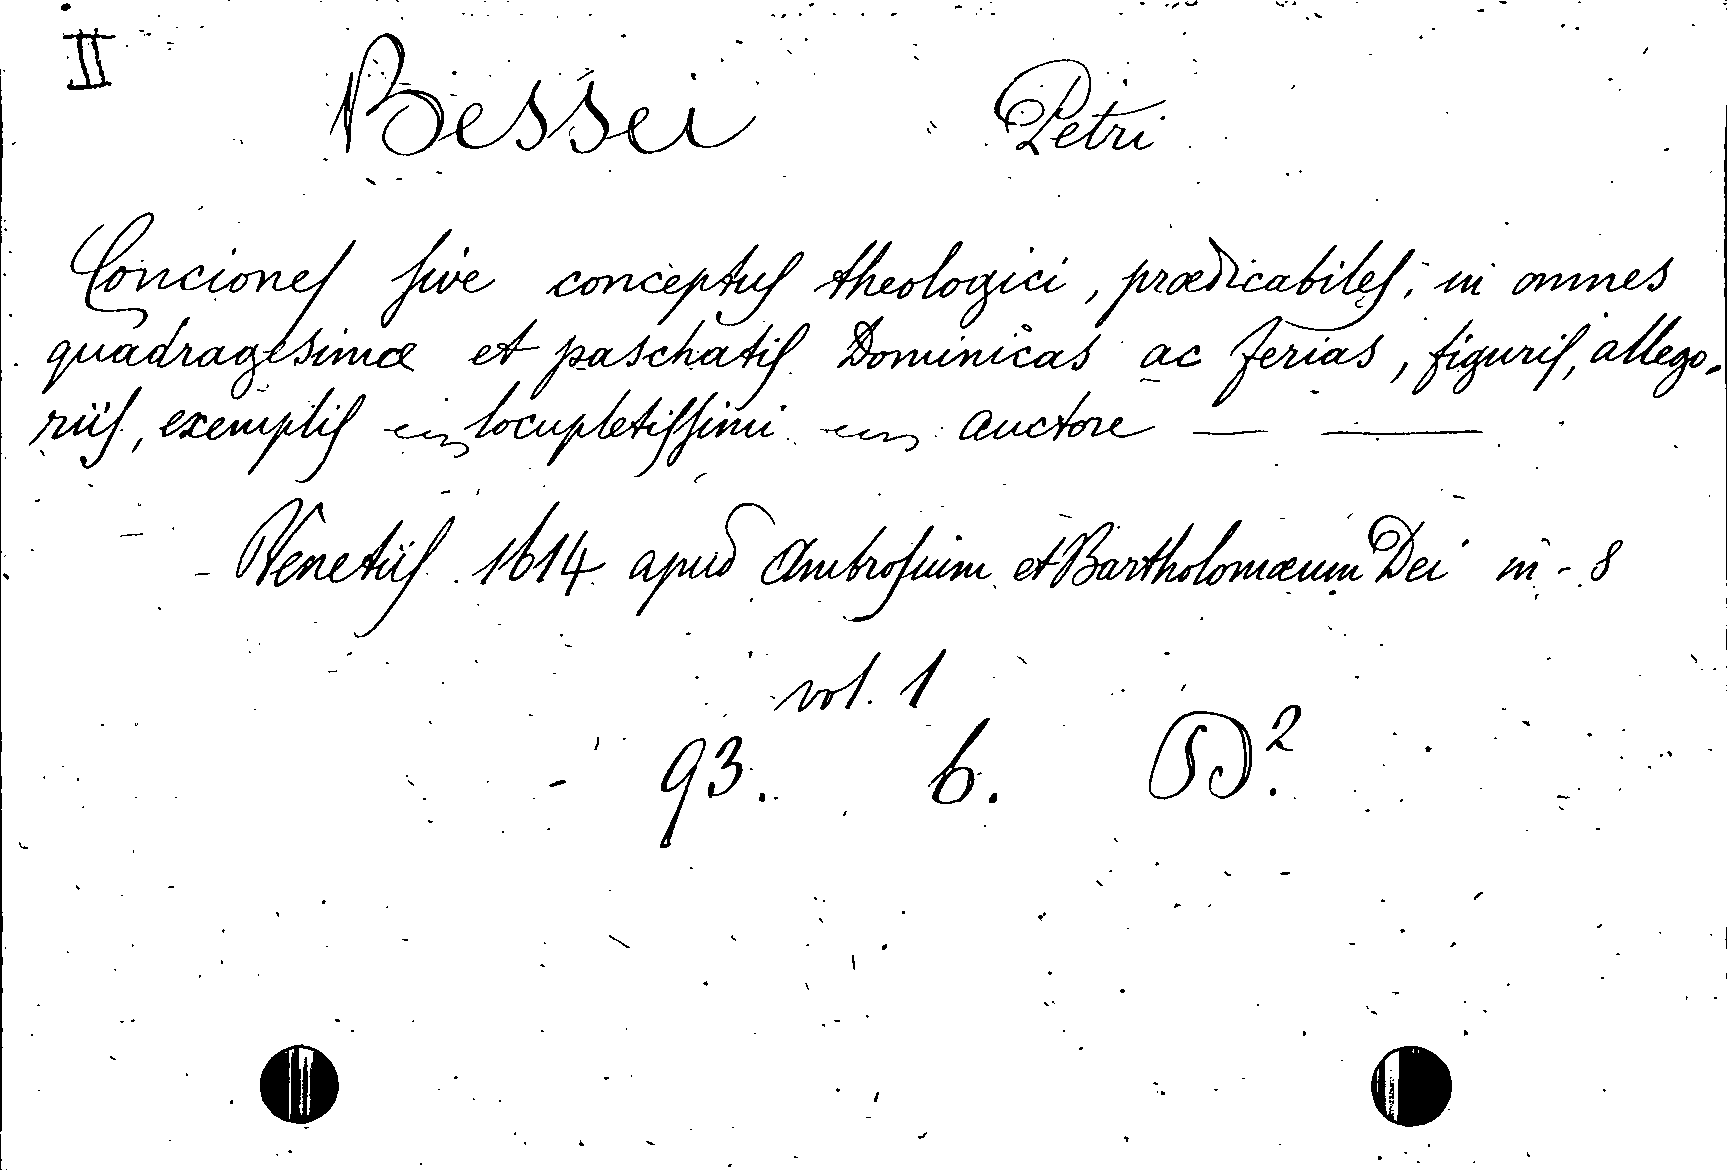 II
Bessei Petri
Conciones sive conceptus theologici, prædicabiles, in omnes
quadragesimæ et paschatis Dominicas ac ferias, figuris, allego-
riis, exemplis locupletissimi auctore — —
Venetiis 1614 apud Ambrosium et Bartholomæum Dei in-8
vol. 1
93. b. D².